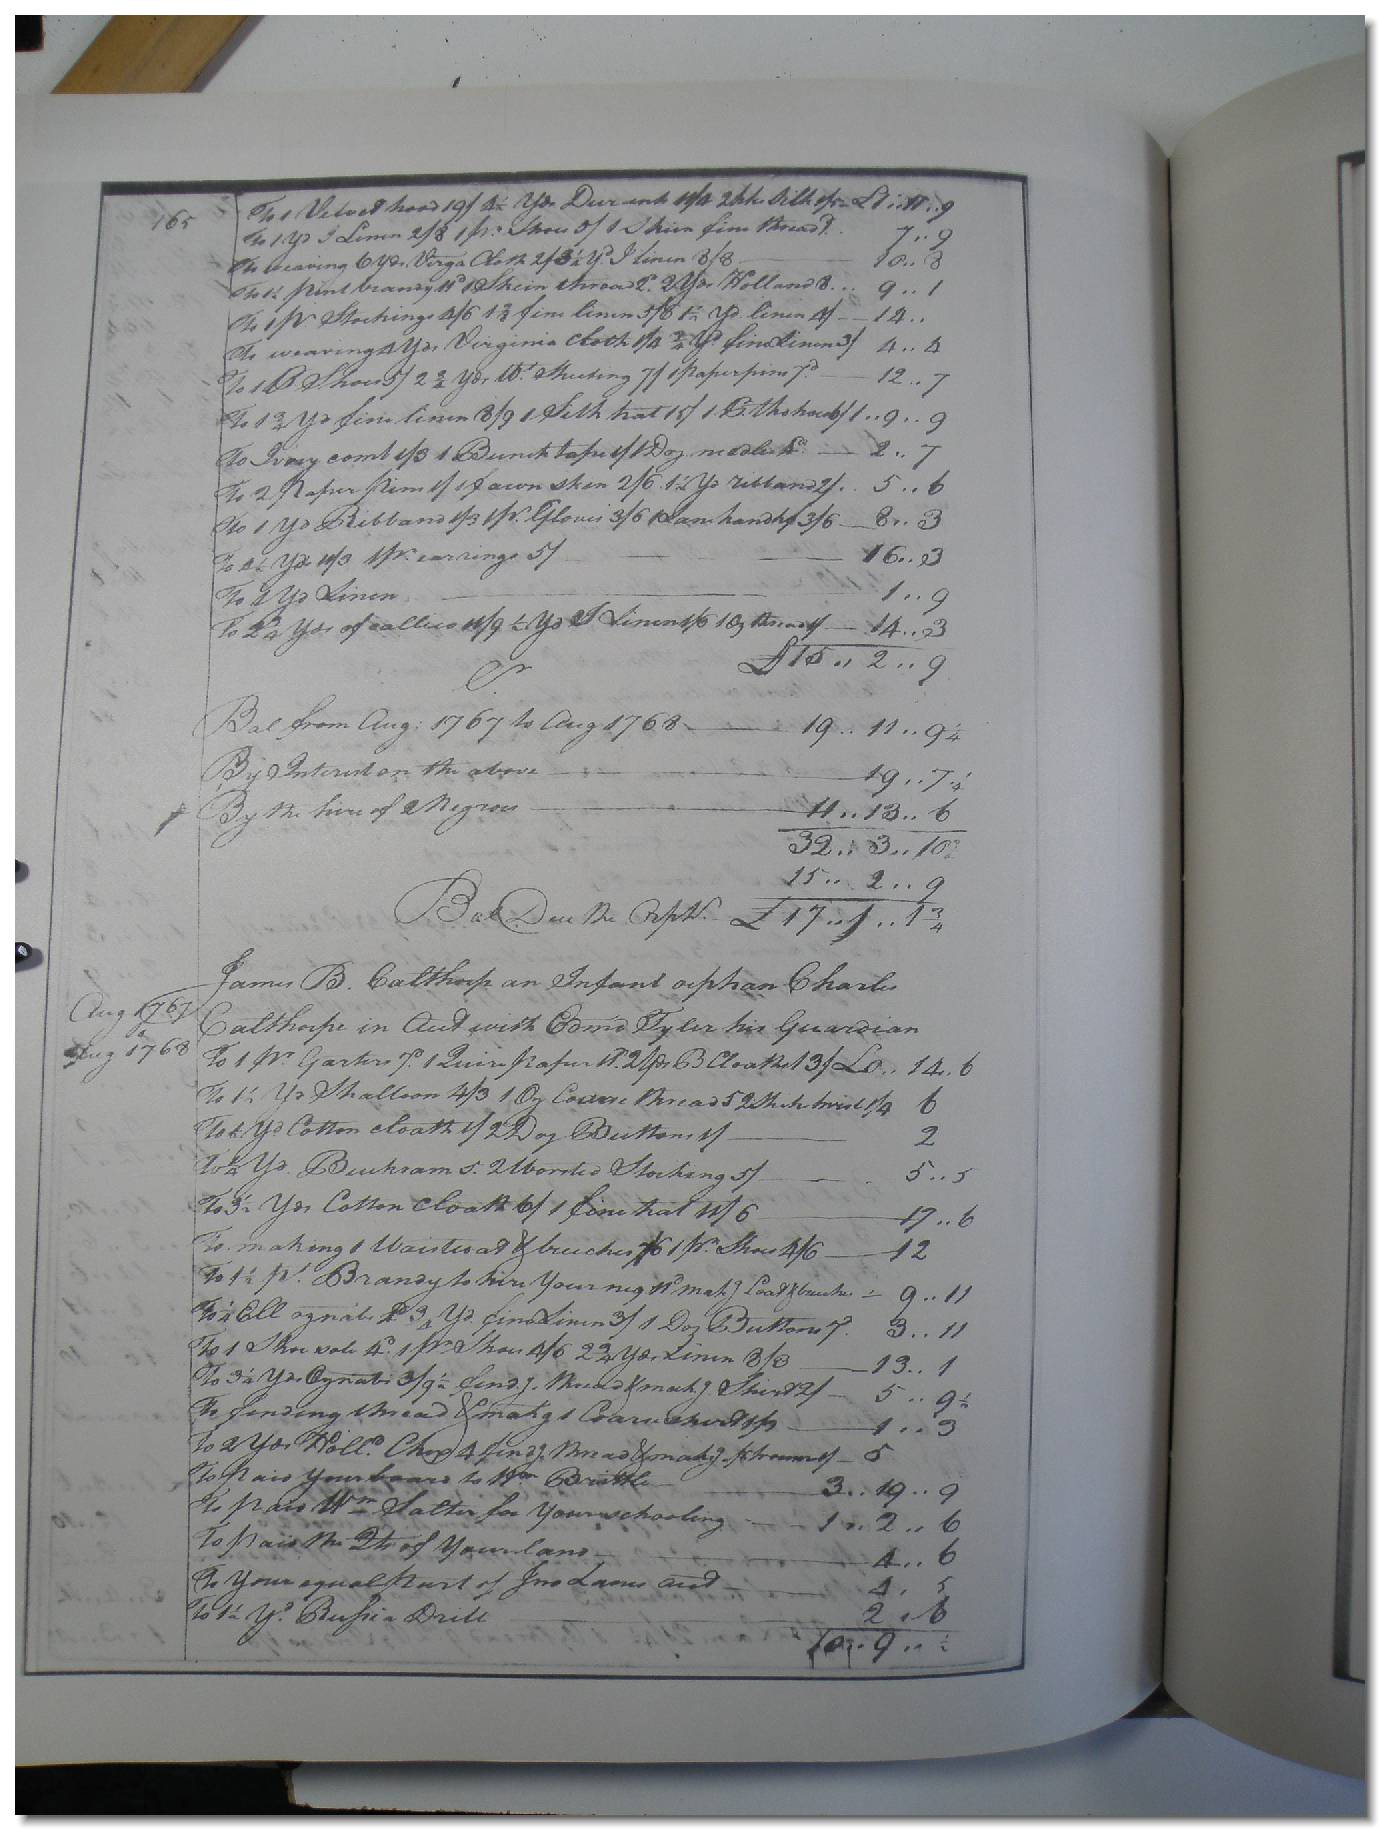 165
To 1 Velvet hood 19/ 4½ Yds Durant 1/4 2 hks silk 1/5
To 1 Yd I Linen 2/8 1 pr. Shoes 5/ 1 Skein fine thread 7..9
To weaving 6 Yds Virga Cloth 2/ 3¼ Yd I linen 3/8 10..8
To 1½ pint brandy 11d 1 Skein thread 2d 2 Yds Holland 8... 9..1
To 1 pr Stockings 4/6 1¾ fine linen 3/8 1½ Yd linen 4/ 14..
To weaving 4 Yds Virginia cloth 1/4 ¾ Yd fine Linen 3/ 4..4
To 1 P Shoes 5/ 2¾ Yds Wt. Sheeting 7/ 1 paper pins 7d 12..7
To 1¾ Yd fine linen 8/9 1 Silk hat 15/ 1 1..9..9
To Ivory comb 1/3 1 Bunch tape 1/ 1 Doz needles 4d 2..7
To 2 paper pins 1/ 1 fawn skin 2/6 1¼ Yd ribband 2/.. 5..6
To 1 Yd Ribband 1/3 1 pr. Gloves 3/6 1 Lawn handkf 3/6 8..3
To 2½ Yds 4/3 1 pr. earrings 5/ 16..3
To 1 Yd Linen 1..9
To 2¾ Yds of callico 4/9 ½ Yd I Linen 1/6 1 Oz thread 1/ 14..3
£15..2..9
Cr
Bal from Aug: 1767 to Aug 1768 19..11..9¼
By Interest on the above 19..7¼
By the hire of 2 Negroes 11..13..6
32..3..10
15..2..9
Bal Due the Orph. £17..1..1¾
James B. Calthorp an Infant orphan Charles
Aug 1767
to
Aug 1768
Calthorpe in Acct with Edmd Tyler his Guardian
To 1 pr. Garters 7d. 1 Quire paper 11d. 2 Yds B Cloathe 13/ £0..14..6
To 1½ Yd Shalloon 4/3 1 Oz Coarse thread 5 2 Stick twist 1/4 6
To ½ Yd Cotton cloath 1/ 2 Doz Buttons 1/ 2
To ¼ Yd. Buckram 5. 2 Worsted Stocking 5/ 5..5
To 3½ Yds Cotton Cloath 6/ 1 fine hat 11/6 17..6
To making 1 Waistcoat & breeches 7/6 1 pr. Shoes 4/6 12
To 1½ pt. Brandy to hire Your neg 11d makg Coat & breeches 9..11
To ¼ Ell oznabs 4d ¾ Yd. fine Linen 3/ 1 Doz Buttons 7. 3..11
To 1 Shoe sole 4d. 1 pr. Shoes 4/6 2¾ Yds Linen 3/ 13..1
To 3¼ Yds Oznabs 3/9½ findg. thread & makg Shirt 2/ 5..9½
To finding thread & makg 1 Coarse shirt 1/3 1..3
To 2 Yds Holld. Chex 4 findg thread & makg trowsers 1/ 5
To paid your board to Wm Brittle 3..19..9
To paid Wm Salter for Your schooling 1..2..6
To paid the Qts of Your land 4..6
To Your equal part of Jno Lanes acct 4..5
To 1¼ Yd. Russia Drill 2..6
10..9..½